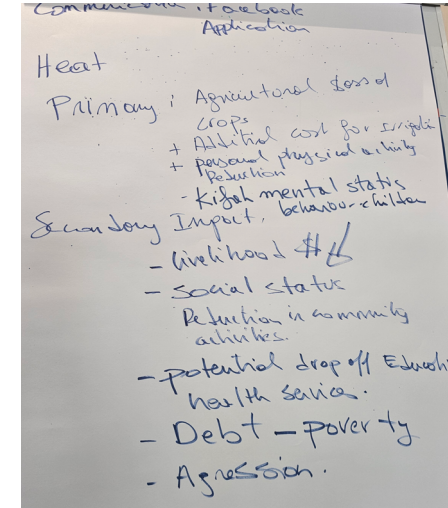 Facebook
Application
Heat
Primary: Agricultural Loss of
crops
+ Additinal cost for Irrigatio
+ personal physical activity
Reduction
- Kifah mental statis
behaviour children
Secondary Impact.
- livelihood $
- Social status
Reduction in community
activities.
- potential drop off Educati
health service.
- Debt - poverty
- Agression.